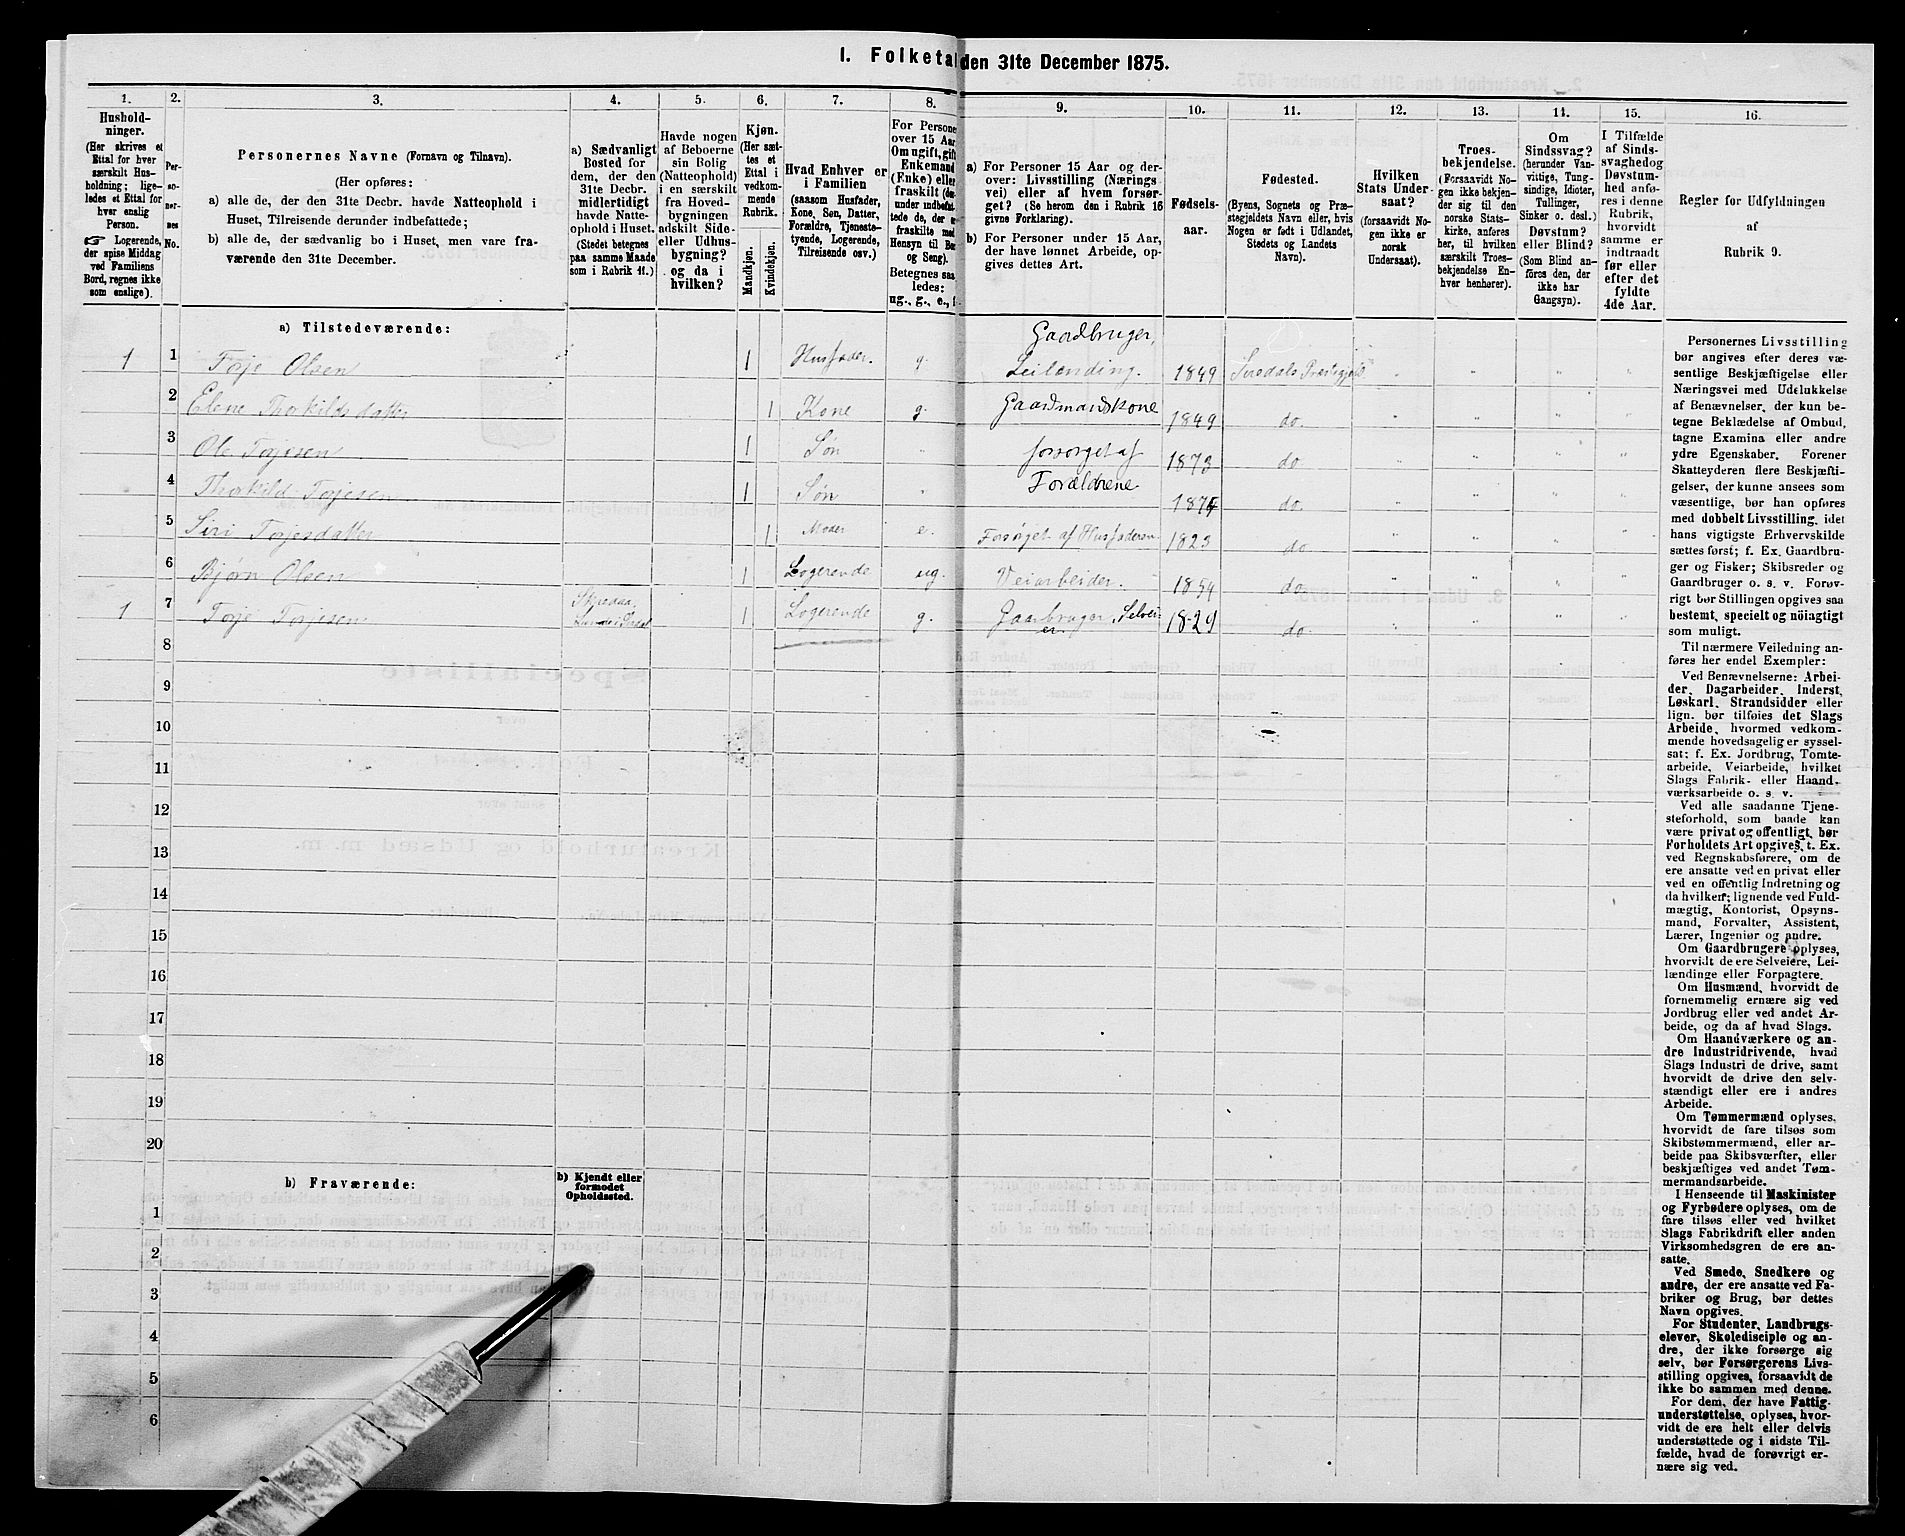 I. Folketal den 31te December 1875.
1.
Hushold-
ninger.
(Her skrives et
Ettal for hver
særskilt Hus-
holdning; lige-
ledes et Ettal for
hver enslig
Person.
☞ Logerende,
der spise Middag
ved Familiens
Bord, regnes ikke
som enslige).
2.
Per-
so-
ner-
nes
No.
3.
Personernes Navne (Fornavn og Tilnavn).
(Her opføres:
a) alle de, der den 31te Decbr. havde Natteophold i
Huset, Tilreisende derunder indbefattede;
b) alle de, der sædvanlig bo i Huset, men vare fra-
værende den 31te December.
4.
a) Sædvanligt
Bosted for
dem, der den
31te Decbr.
midlertidigt
havde Natte-
ophold i Huset.
(Stedet betegnes
paa samme Maade
som i Rubrik 11.)
5.
Havde nogen
af Beboerne
sin Bolig
(Natteophold)
i en særskilt
fra Hoved-
bygningen
adskilt Side-
eller Udhus-
bygning?
og da i
hvilken?
6.
Kjøn.
(Her sæt-
tes et
Ettal i
vedkom-
mende
Rubrik.
Mandkjøn.
Kvindekjøn.
7.
Hvad Enhver er
i Familien
(saasom Husfader,
Kone, Søn, Datter,
Forældre, Tjeneste-
tyende, Logerende,
Tilreisende osv.)
8.
For Persone
over 15 Aar
Om ugift, gift
Enkemand
(Enke) eller
fraskilt (der-
under indbefat-
tede de, der e
fraskilte med
Hensyn til Bo
og Seng).
Betegnes saa
ledes:
ug., g., e., f
9.
a) For Personer 15 Aar og der-
over: Livsstilling (Nærings
vei) eller af hvem forsør-
get? (Se herom den i Rubrik 16
givne Forklaring).
b) For Personer under 15 Aar,
der have lønnet Arbeide, op-
gives dettes Art.
10.
Fødsels-
aar.
11.
Fødested.
(Byens, Sognets og Præ-
stegjeldets Navn eller, hvis
Nogen er født i Udlandet,
Stedets og Landets
Navn).
12.
Hvilken
Stats Under-
saat?
(forsaavidt No-
gen ikke er
norsk
Undersaat).
13.
Troes-
bekjendelse.
(Forsaavidt No-
gen ikke bekjen-
der sig til den
norske Stats-
kirke, anføres
her, til hvilken
særskilt Troes-
bekjendelse En-
hver henhører).
14.
Om
Sindssvag?
(herunder Van-
vittige, Tung-
sindige, Idioter,
Tullinger,
Sinker o. desl.)
Døvstum?
eller Blind?
(Som Blind an-
føres den, der
ikke har
Gangsyn).
15.
I Tilfælde
af Sinds-
svaghedog
Døvstum-
hed anfø-
res i denne
Rubrik,
hvorvidt
samme er
indtraadt
før eller
efter det
fyldte
4de Aar.
16.
Regler for Udfyldningen
af
Rubrik 9.
a) Tilstedeværende:
1 1 Torje Olsen 1 Husfader. g. Gaardbruger, Leilending. 1849 Siredals Præstegjeld
2 Elene Thorkildsdatter 1 Kone g. Gaardmandskone 1849 do.
3 Ole Torjesen 1 Søn forsørget af 1873 do
4 Thorkild Torjesen 1 Søn Forældrene 1874 do.
5 Siri Torjesdatter 1 Moder e. Forsørget af Husfaderen 1823 do
6 Bjørn Olsen 1 Logerende ug. Veiarbeider. 1854 do.
1 7 Torje Torjesen 1 Logerende g. Gaarbruger, Selvei-
er. 1829 do.
8
9
10
11
12
13
14
15
16
17
18
19
20
b) Fraværende:
b) Kjendt eller
formodet
Opholdssted.
1
2
3
4
5
6
Personernes Livsstilling
bør angives efter deres væ-
sentlige Beskjæftigelse eller
Næringsvei med Udelukkelse
af Benævnelser, der kun be-
tegne Beklædelse af Ombud,
tagne Examina eller andre
ydre Egenskaber. Forener
Skatteyderen flere Beskjæfti-
gelser, der kunne ansees som
væsentlige, bør han opføres
med dobbelt Livsstilling, idet
hans vigtigste Erhvervskilde
sættes først; f. Ex. Gaardbru-
ger og Fisker; Skibsreder og
Gaardbruger o. s. v. Forøv-
rigt bør Stillingen opgives saa
bestemt, specielt og nöiagtigt
som muligt.
Til nærmere Veiledning an-
føres her endel Exempler:
Ved Benævnelserne: Arbei-
der, Dagarbeider, Inderst,
Løskarl, Strandsidder eller
lign. bør tilføies det Slags
Arbeide, hvormed vedkom-
mende hovedsagelig er syssel-
sat; f. Ex. Jordbrug, Tomte-
arbeide, Veiarbeide, hvilket
Slags Fabrik- eller Haand-
værksarbeide o. s. v.
Ved alle saadanne Tjene-
steforhold, som baade kan
være privat og offentligt, bør
Forholdets Art opgives, t. Ex.
ved Regnskabsførere, om de
ere ansatte ved en privat eller
ved en offentlig Indretning og
da hvilken; lignende ved Fuld-
mægtig, Kontorist, Opsyns-
mand, Forvalter, Assistent,
Lærer, Ingeniør og andre.
Om Gaardbrugere oplyses,
hvorvidt de ere Selveiere, Lei-
lændinge eller Forpagtere.
Om Husmænd, hvorvidt de
fornemmelig ernære sig ved
Jordbrug eller ved andet Ar-
beide, og da af hvad Slags.
Om Haandværkere og an-
dre Industridrivende, hvad
Slags Industri de drive, samt
hvorvidt de drive den selv-
stændigt eller ere i andres
Arbeide.
Om Tømmermænd oplyses,
hvorvidt de fare tilsøs som
Skibstømmermænd, eller ar-
beide paa Skibsværfter, eller
beskjæftiges ved andet Tøm-
mermandsarbeide.
I Henseende til Maskinister
og Fyrbødere oplyses, om de
fare tilsøs eller ved hvilket
Slags Fabrikdrift eller anden
Virksomhedsgren de ere an-
satte.
Ved Smede, Snedkere og
andre, der ere ansatte ved Fa-
briker og Brug, bør dettes
Navn opgives.
For Studenter, Landbrugs-
elever, Skoledisciple og an-
dre, der ikke forsørge sig
selv, bør Forsørgerens Livs-
stilling opgives, forsaavidt de
ikke bo sammen med denne.
For dem, der have Fattig-
understøttelse, oplyses, hvor-
vidt de ere helt eller delvis
understøttede og i sidste Til-
fælde, hvad de forøvrigt er-
nære sig ved.